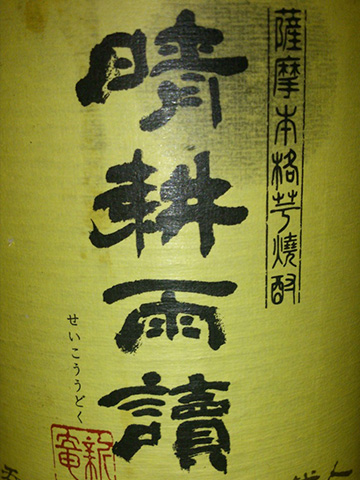 薩摩本格芋焼酎
晴耕雨讀
せいこううどく